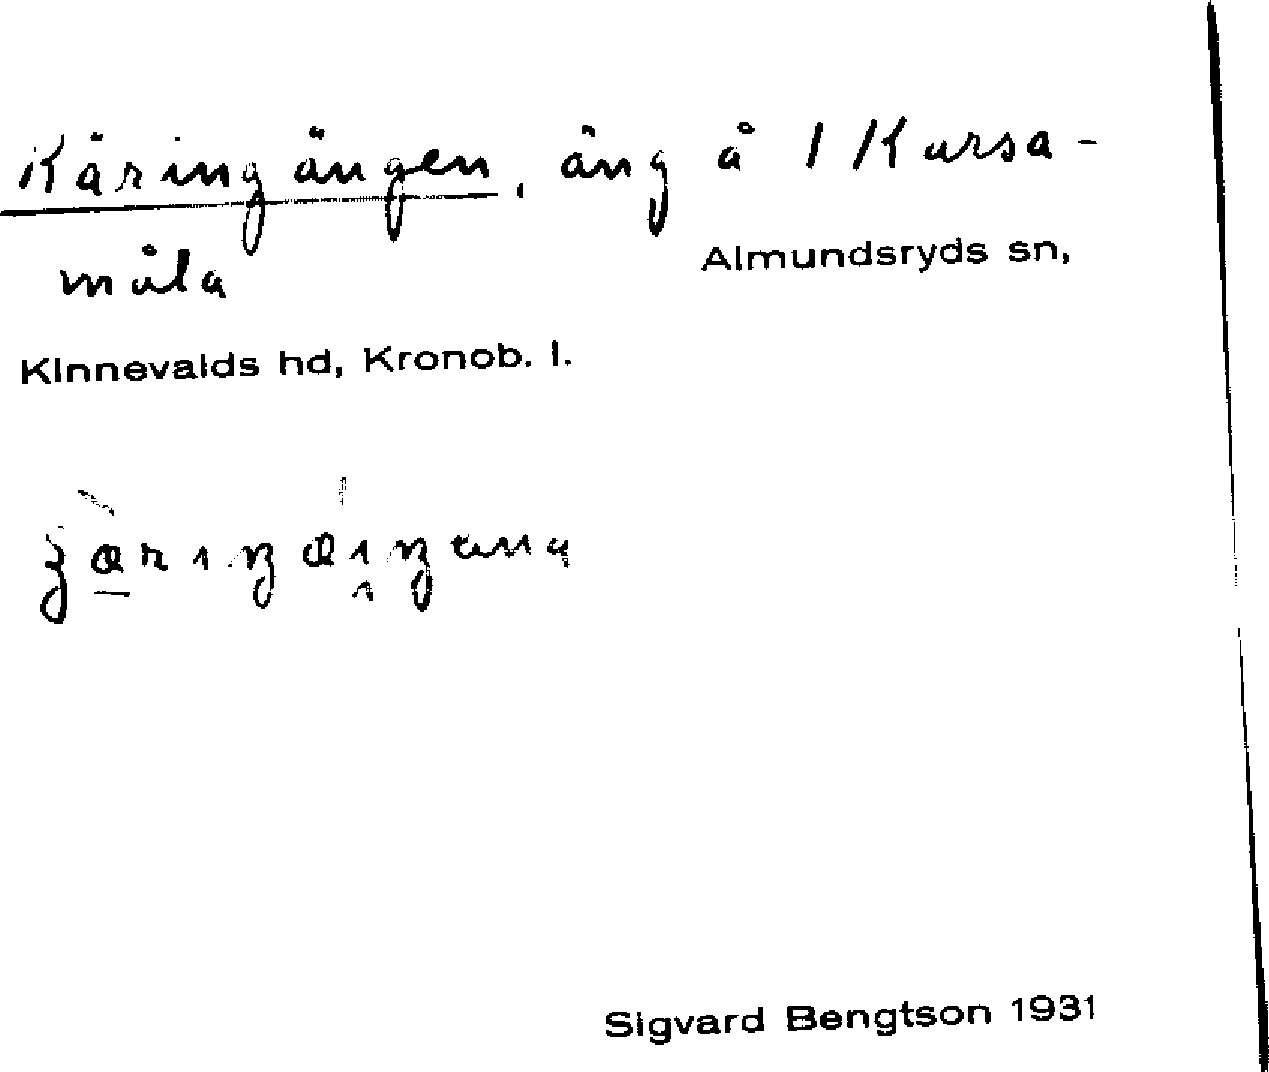 Käringängen, äng å 1 Kursa-
måla
Almundsryds sn,
Kinnevalds hd, Kronob. l.
Sigvard Bengtson 1931